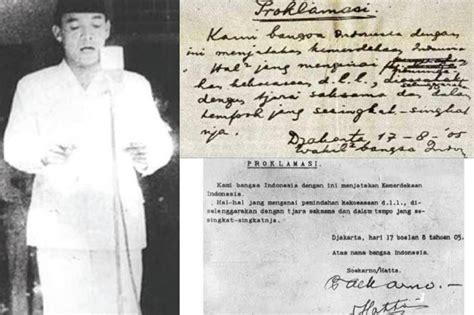 Proklamasi.
Kami bangsa Indonesia dengan
ini menjatakan kemerdekaan Indonesia
Hal² jang mengenai
kekoeasaan d.l.l.,
dengan tjara saksama dan dalam
tempoh jang sesingkat-singkat
nja.
Djakarta 17-8-'05
Wakil² bangsa Indon
PROKLAMASI.
Kami bangsa Indonesia dengan ini menjatakan Kemerdekaan
Indonesia.
Hal-hal jang mengenai pemindahan kekoeasaan d.l.l., di-
selenggarakan dengan tjara saksama dan dalam tempo jang se-
singkat-singkatnja.
Djakarta, hari 17 boelan 8 tahoen 05.
Atas nama bangsa Indonesia.
Soekarno/Hatta.
Soekarno.
Hatta